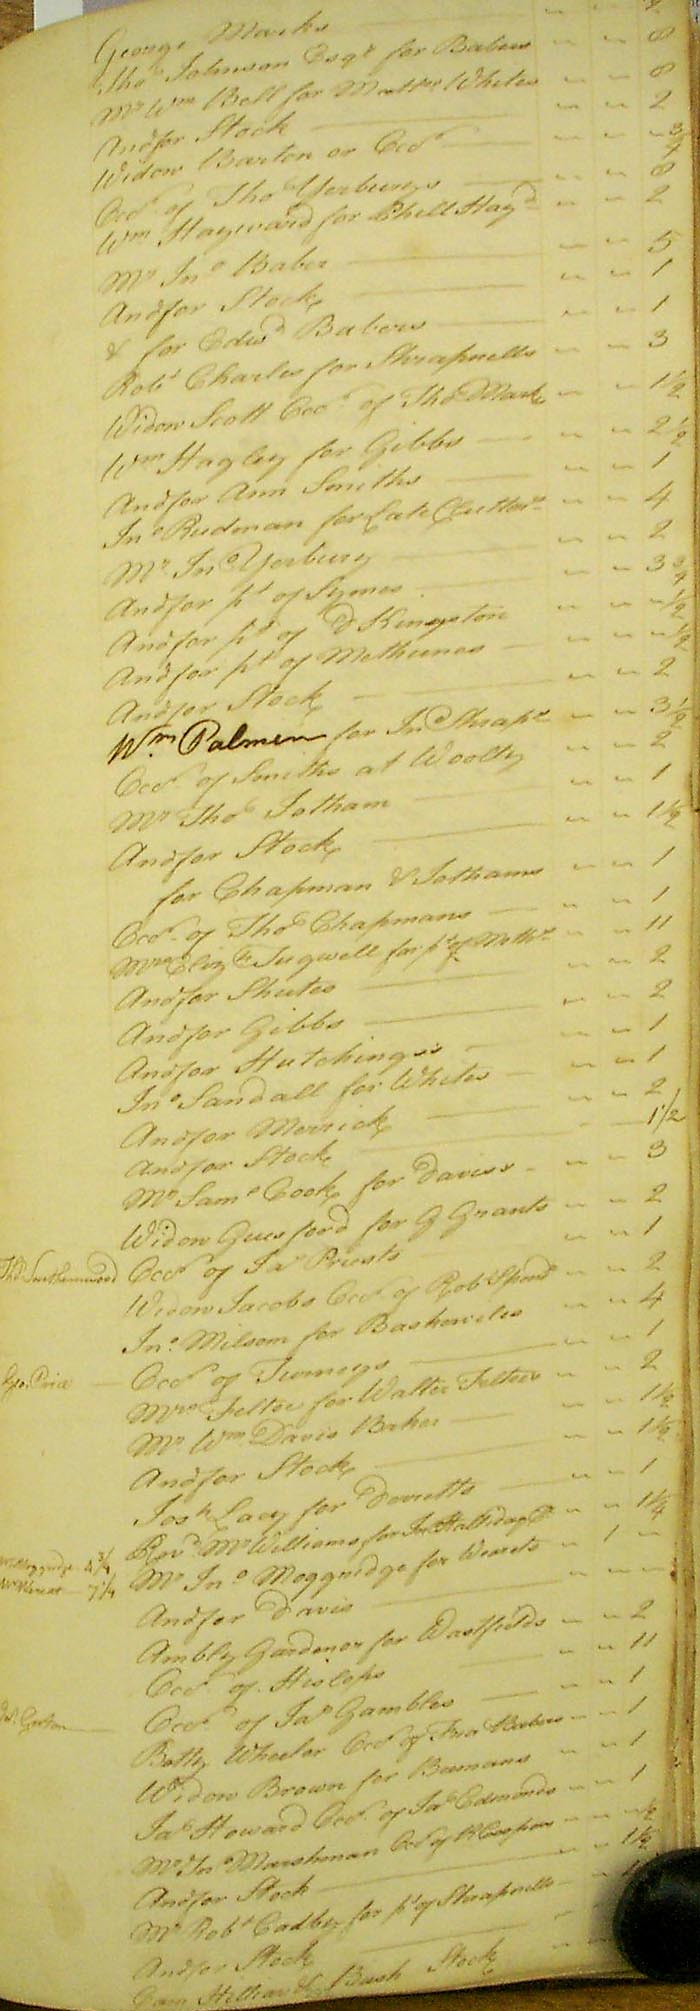 George Marks
Tho.s Johnson Esq.r for Babers - - 8
Mr Wm Bell for Matt.w Whites - - 8
And for Stock - - 2
Widow Barton or Occ.r - - - 3/4
Occ.r of Tho.s Yerburys - - 8
Wm Hayward for Phill Hay.d - - 2
Mr Jn.o Baber - - 5
And for Stock - - 1
& for Edw.d Babers - - 1
Rob.t Charles for Shrapnells - - 3
Widow Scott Occ.r of Tho.s Mark - - 1 1/2
Wm Hagley for Gibbs - - 2 1/2
And for Ann Smiths - - 1
Jn.o Rudman for Late Clutter.s - - 4
Mr Jn.o Yerbury - - 2
And for p.t of Symes - - 3 3/4
And for p.t of D Kingston - - - 1/2
And for p.t of Methuens - - - 1/2
And for Stock - - 2
Wm Palmer for Jn.o Shrap.s - - 3 1/2
Occ.r of Smiths at Woolly - - 2
Mr Tho.s Jotham - - 1
And for Stock - - 1 1/2
for Chapman & Jothams - - 1
Occ.r of Tho.s Chapmans - - 1
Mrs Eliz.th Tugwell for p.t of Meth.s - - 11
And for Shutes - - 2
And for Gibbs - - 2
And for Hutchings - - 1
Jn.o Sandall for Whites - - 1
And for Merrick - - 2
And for Stock - - 1 1/2
Mr Sam.l Cook for Daviss - - 3
Widow Guesford for G Grants - - 2
Tho.s Smithenwood Occ.r of Ja.s Priests - - 1
Widow Jacobs Occ.r of Rob.t - - 2
Jn.o Milsom for Baskerviles - - 4
Geo. Price Occ.r of Turneys - - 1
Mrs Feltoe for Walter Feltoes - - 2
Mr Wm Davis Baker - - 1 1/2
And for Stock - - 1 1/2
Jos.h Lacy for Doretts - - 1
Rev.d Mr Williams for Jn.o Halliday - - 1 1/4
Mr Moggridge 4 3/4 Mr Jn.o Moggridge for Wearets - 1 -
7 1/4 And for Davis - - -
Ambly Gardener for Wastfields - - 2
Occ.r of Hislops - - 11
Occ.r of Ja.s Gambles - - 1
Betty Wheeler Occ.r of Babers - - 1
Widow Brown for Bamans - - 1
Ja.s Howard Occ.r of Ja.s Edmonds - - 1
Mr Jn.o Marshman Occ.r of - - - 1/2
And for Stock - - 1 1/2
Mr Rob.t Cadby for p.t of Shrapnells
And for Stock
Hillier & Bush Stock